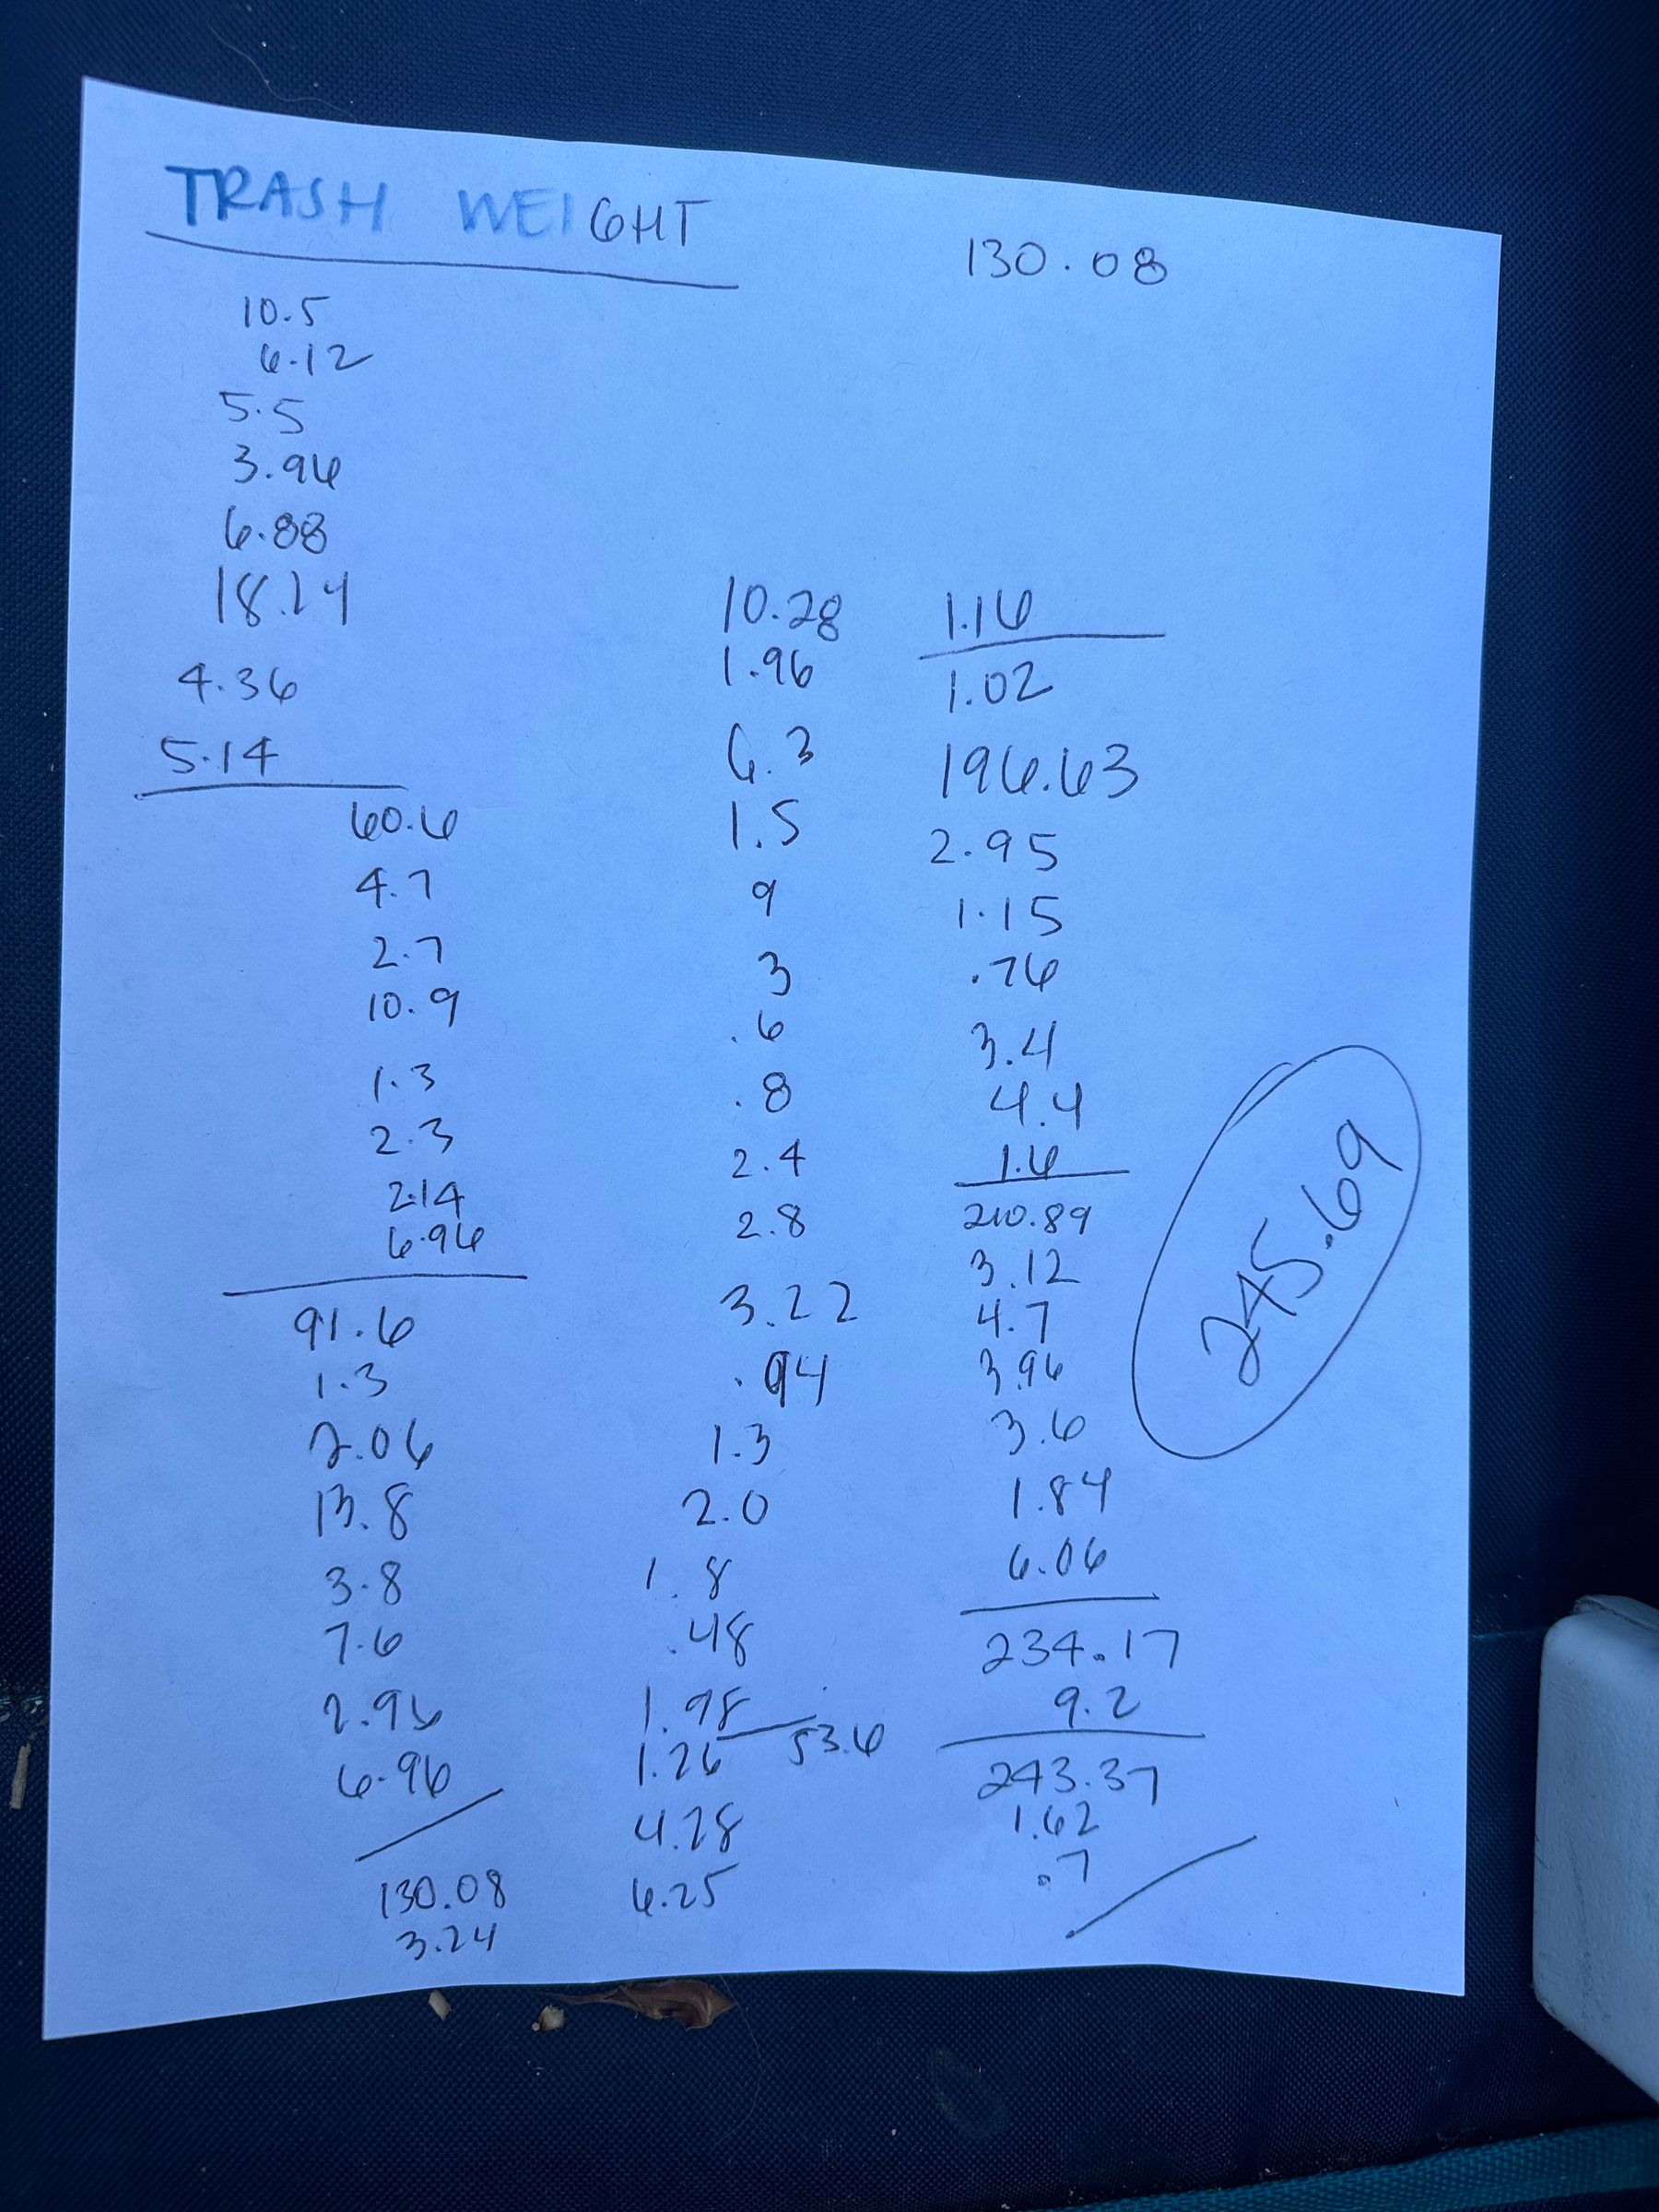 TRASH WEIGHT
130.08
10.5
6.12
5.5
3.96
6.88
18.14
4.36
5.14
60.6
4.7
2.7
10.9
1.3
2.3
2.14
6.96
91.6
1.3
2.06
13.8
3.8
7.6
2.96
6.96
130.08
3.24
10.28
1.96
6.3
1.5
9
3
.6
.8
2.4
2.8
3.22
.94
1.3
2.0
1.8
.48
1.98
53.6
1.26
4.28
6.25
1.16
1.02
196.63
2.95
1.15
.76
3.4
4.4
1.6
210.89
3.12
4.7
3.96
3.6
1.84
6.06
234.17
9.2
243.37
1.62
.7
245.69